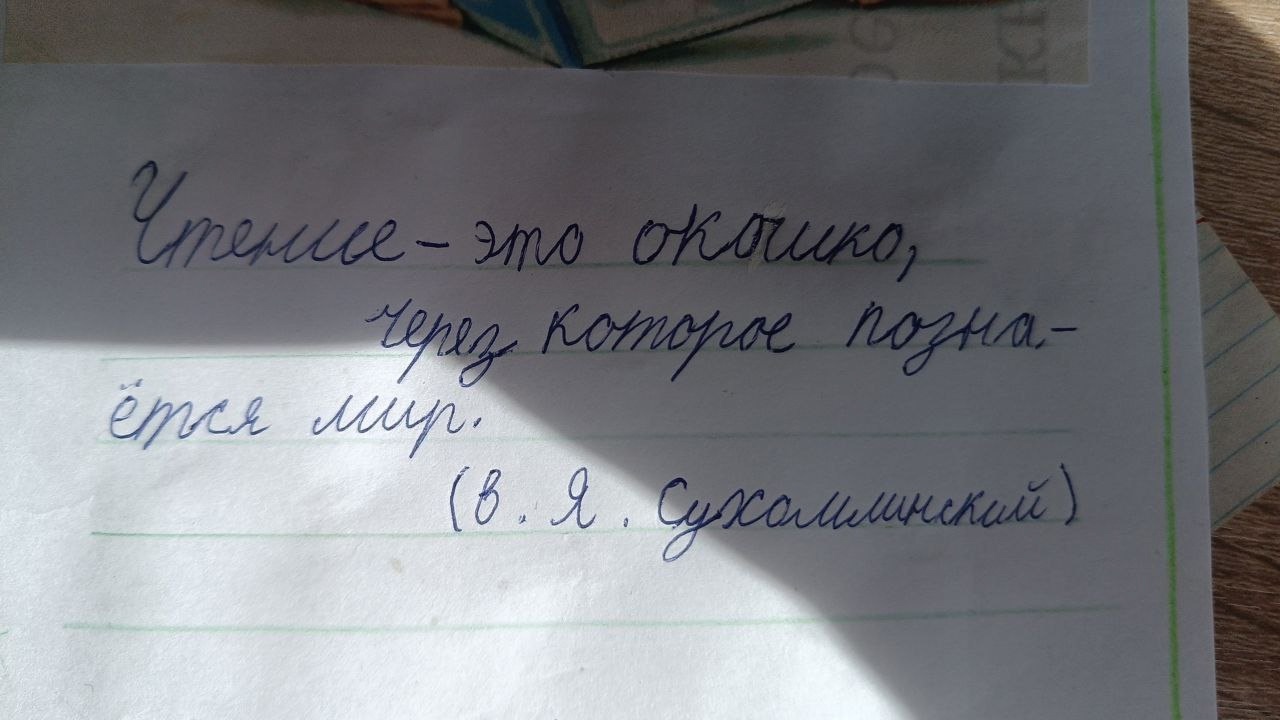 Чтение – это окошко,
через которое позна-
ётся мир.
(В. Я. Сухомлинский)